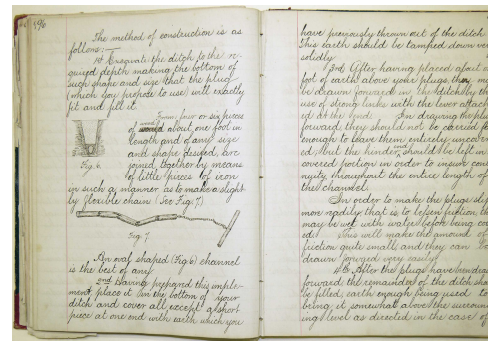 396
The method of construction is as
follows:—
1st Excavate the ditch to the re-
quired depth making the bottom of
such shape and size that the plug
(which you propose to use) will exactly
fit and fill it.
Four or six pieces
of wood about one foot in
length and of any size
and shape desired, are
joined together by means
of little pieces of iron
in such a manner as to make a slight
ly flexible chain (See Fig. 7.)
Fig. 6
Fig. 7
An oval shaped (Fig 6) channel
is the best of any
2nd Having prepared this imple-
ment, place it in the bottom of your
ditch and cover all except a short
piece at one end with earth which you
have previously thrown out of the ditch
This earth should be tamped down very
solidly.
3rd After having placed about a
foot of earth above your plugs, they may
be drawn forward in the ditch by the
use of strong links with the lever attach
ed at the end. In drawing the plugs
forward they should not be carried far
enough to leave them entirely uncover
ed, but the hinder end should be left in
covered portion in order to insure conti
nuity throughout the entire length of
the channel.
In order to make the plugs slip
more readily, that is to lessen friction, they
may be wet with water before being cover
ed. This will make the amount of
friction quite small and they can be
drawn forward very easily.
4th After the plugs have been drawn
forward the remainder of the ditch should
be filled, earth enough being used to
bring it somewhat above the surround
ing level as directed in the case of